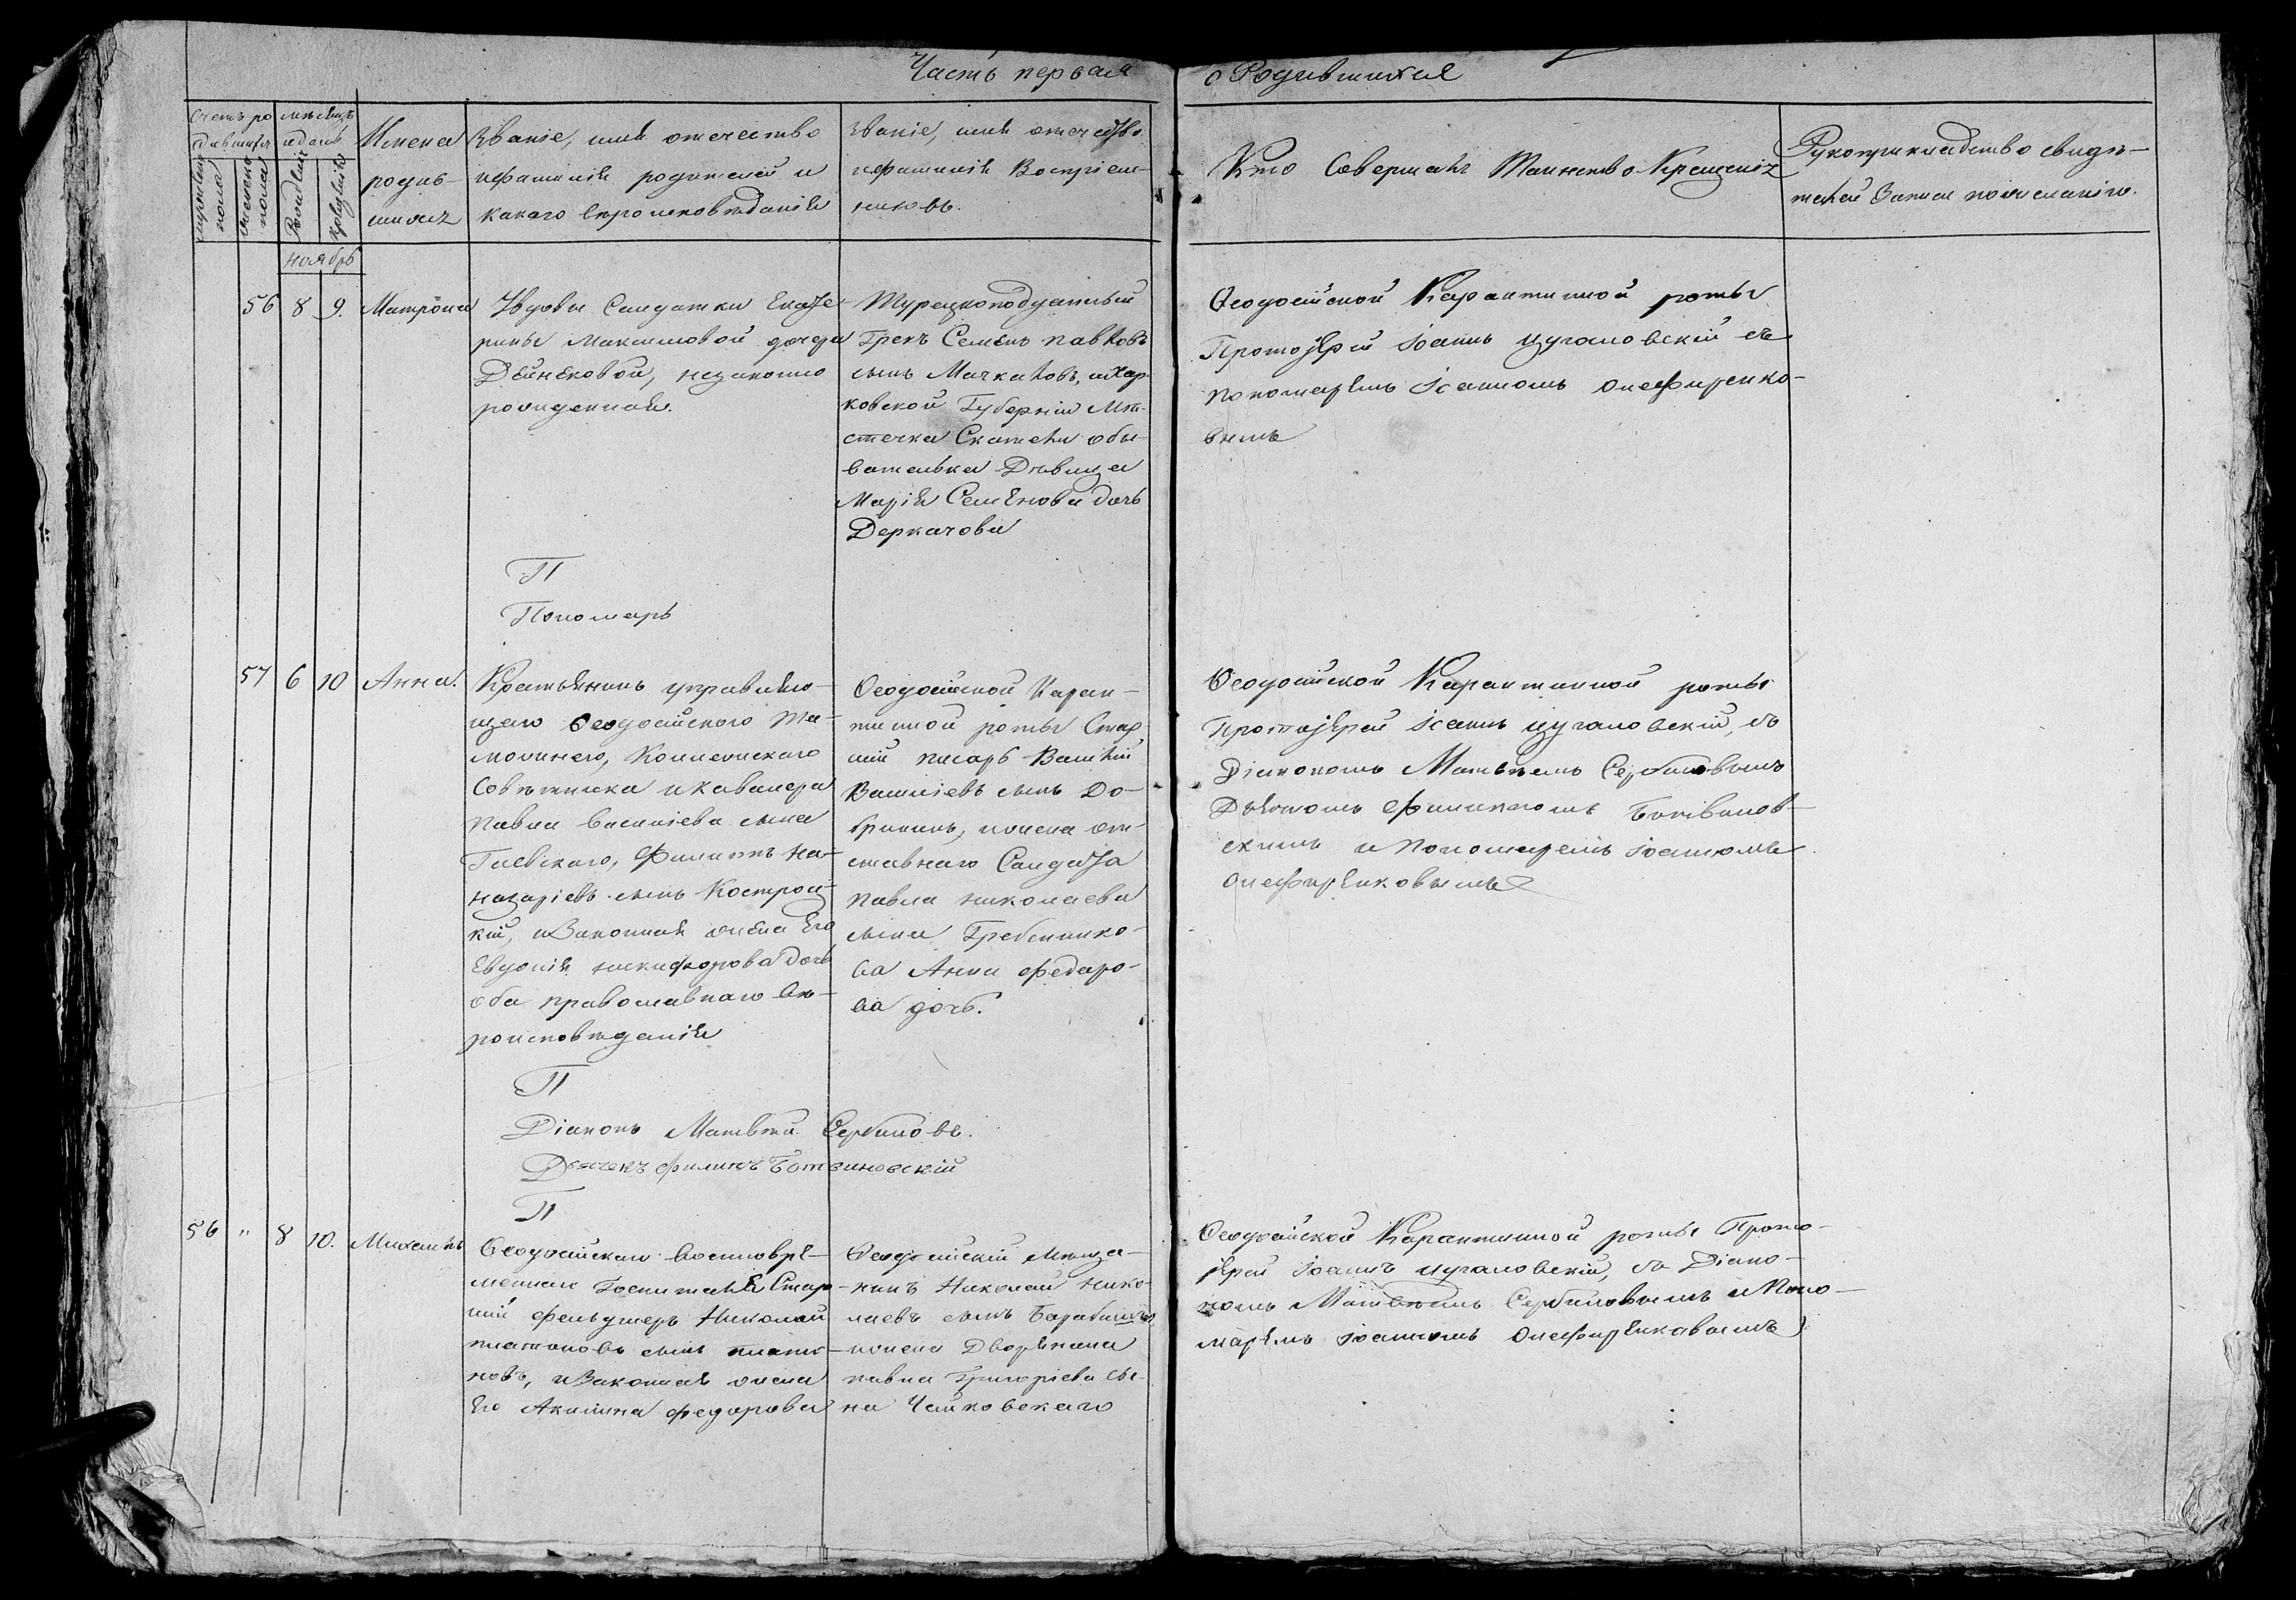 Часть первая
о Родившихся
Счетъ ро
дившихся
мужеска
пола
женска
пола
мѣсяцъ
и день
Рожденія
Крещенія
Имена
родив-
шихъ
Званіе, имя отечество
и фамилія родителей и
какаго вѣроисповѣданія
Званіе, имя отечество
и фамилія Воспріем-
никовъ.
Кто Совершалъ Таинство Крещенія
Рукоприкладство свидѣ-
телей Записи по желанію.
ноябрь
56 8 9. Матрона
Увдовы Салдатки Екате-
рины Максимовой дочери
Дѣйнековой, незаконно
рожденная.
Турецкоподданный
Грекъ Семенъ павловъ
сынъ Мачкаловъ, и Хар-
ковской Губерніи Мѣ-
стечка Скатели обы-
вателька Дѣвица
Марія Семенова дочь
Деркачова
Ѳеодосійской Карантинной роты
Протоіерей Іоаннъ Цугаловскій съ
пономаремъ Іоанномъ Олефиренко-
вымъ
П
Пономарь
57 6 10 Анна.
Крестьянинъ управляю-
щаго Ѳеодосійскаго Та-
можнею, Коллежскаго
Совѣтника и кавалера
Павла Василіева сына
Гаевскаго, Филиппъ На-
назаріевъ сынъ Костроц-
кій, и Законная жена Его
Евдокія никифорова дочь
оба православнаго вѣ-
роисповѣданія
Ѳеодосійской Каран-
тинной роты Стар-
шій писарь Василій
Василіевъ сынъ До-
брынинъ, и жена от-
ставнаго Салдата
Павла николаева
сына Гребеннико-
ва Анна федоро-
ва дочь.
Ѳеодосійской Карантинной роты
Протоіерей Іоаннъ Цугаловскій, съ
Діакономъ Матвѣемъ Сербиновымъ
Дьячкомъ Филиппомъ Ботвинов-
скимъ и Пономаремъ Іоанномъ
Олефиренковымъ
П
Діаконъ Матвѣй Сербиновъ.
Дьячекъ филипъ Ботвиновскій
П
56 " 8 10. Михаилъ
Ѳеодосійскаго Военновре-
меннаго Госпиталя Стар-
шій фельдшеръ Николай
платоновъ сынъ плато-
новъ, и Законная жена
Его Акилина федорова
Ѳеодосійскій Мѣща-
нинъ Николай Нико-
лаевъ сынъ
и жена Дворянина
павла Григоріева сы-
на Чайковскаго
Ѳеодосійской Карантинной роты Прото-
іерей Іоаннъ Цугаловскій, съ Діако-
номъ Матвѣемъ Сербиновымъ и Поно-
маремъ Іоанномъ Олефиренковымъ